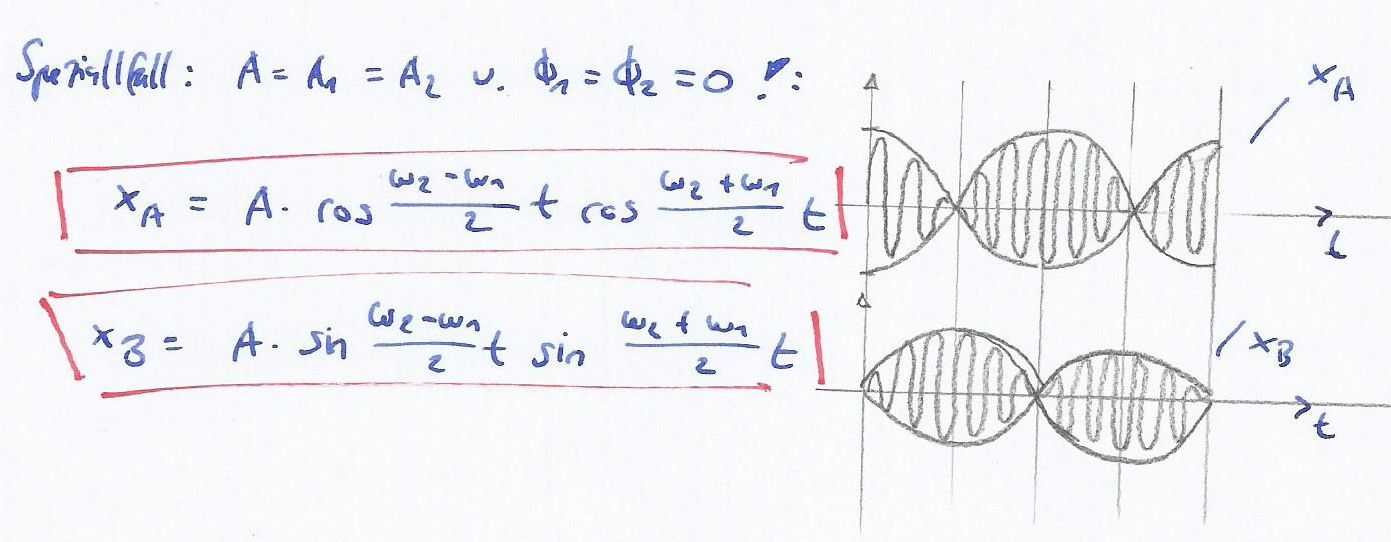 Speziallfall: A = A₁ = A₂ u. ϕ₁ = ϕ₂ = 0 !:
x_A
x_A = A · cos (ω₂ - ω₁)/2 t cos (ω₂ + ω₁)/2 t
t
x_B = A · sin (ω₂ - ω₁)/2 t sin (ω₂ + ω₁)/2 t
x_B
t